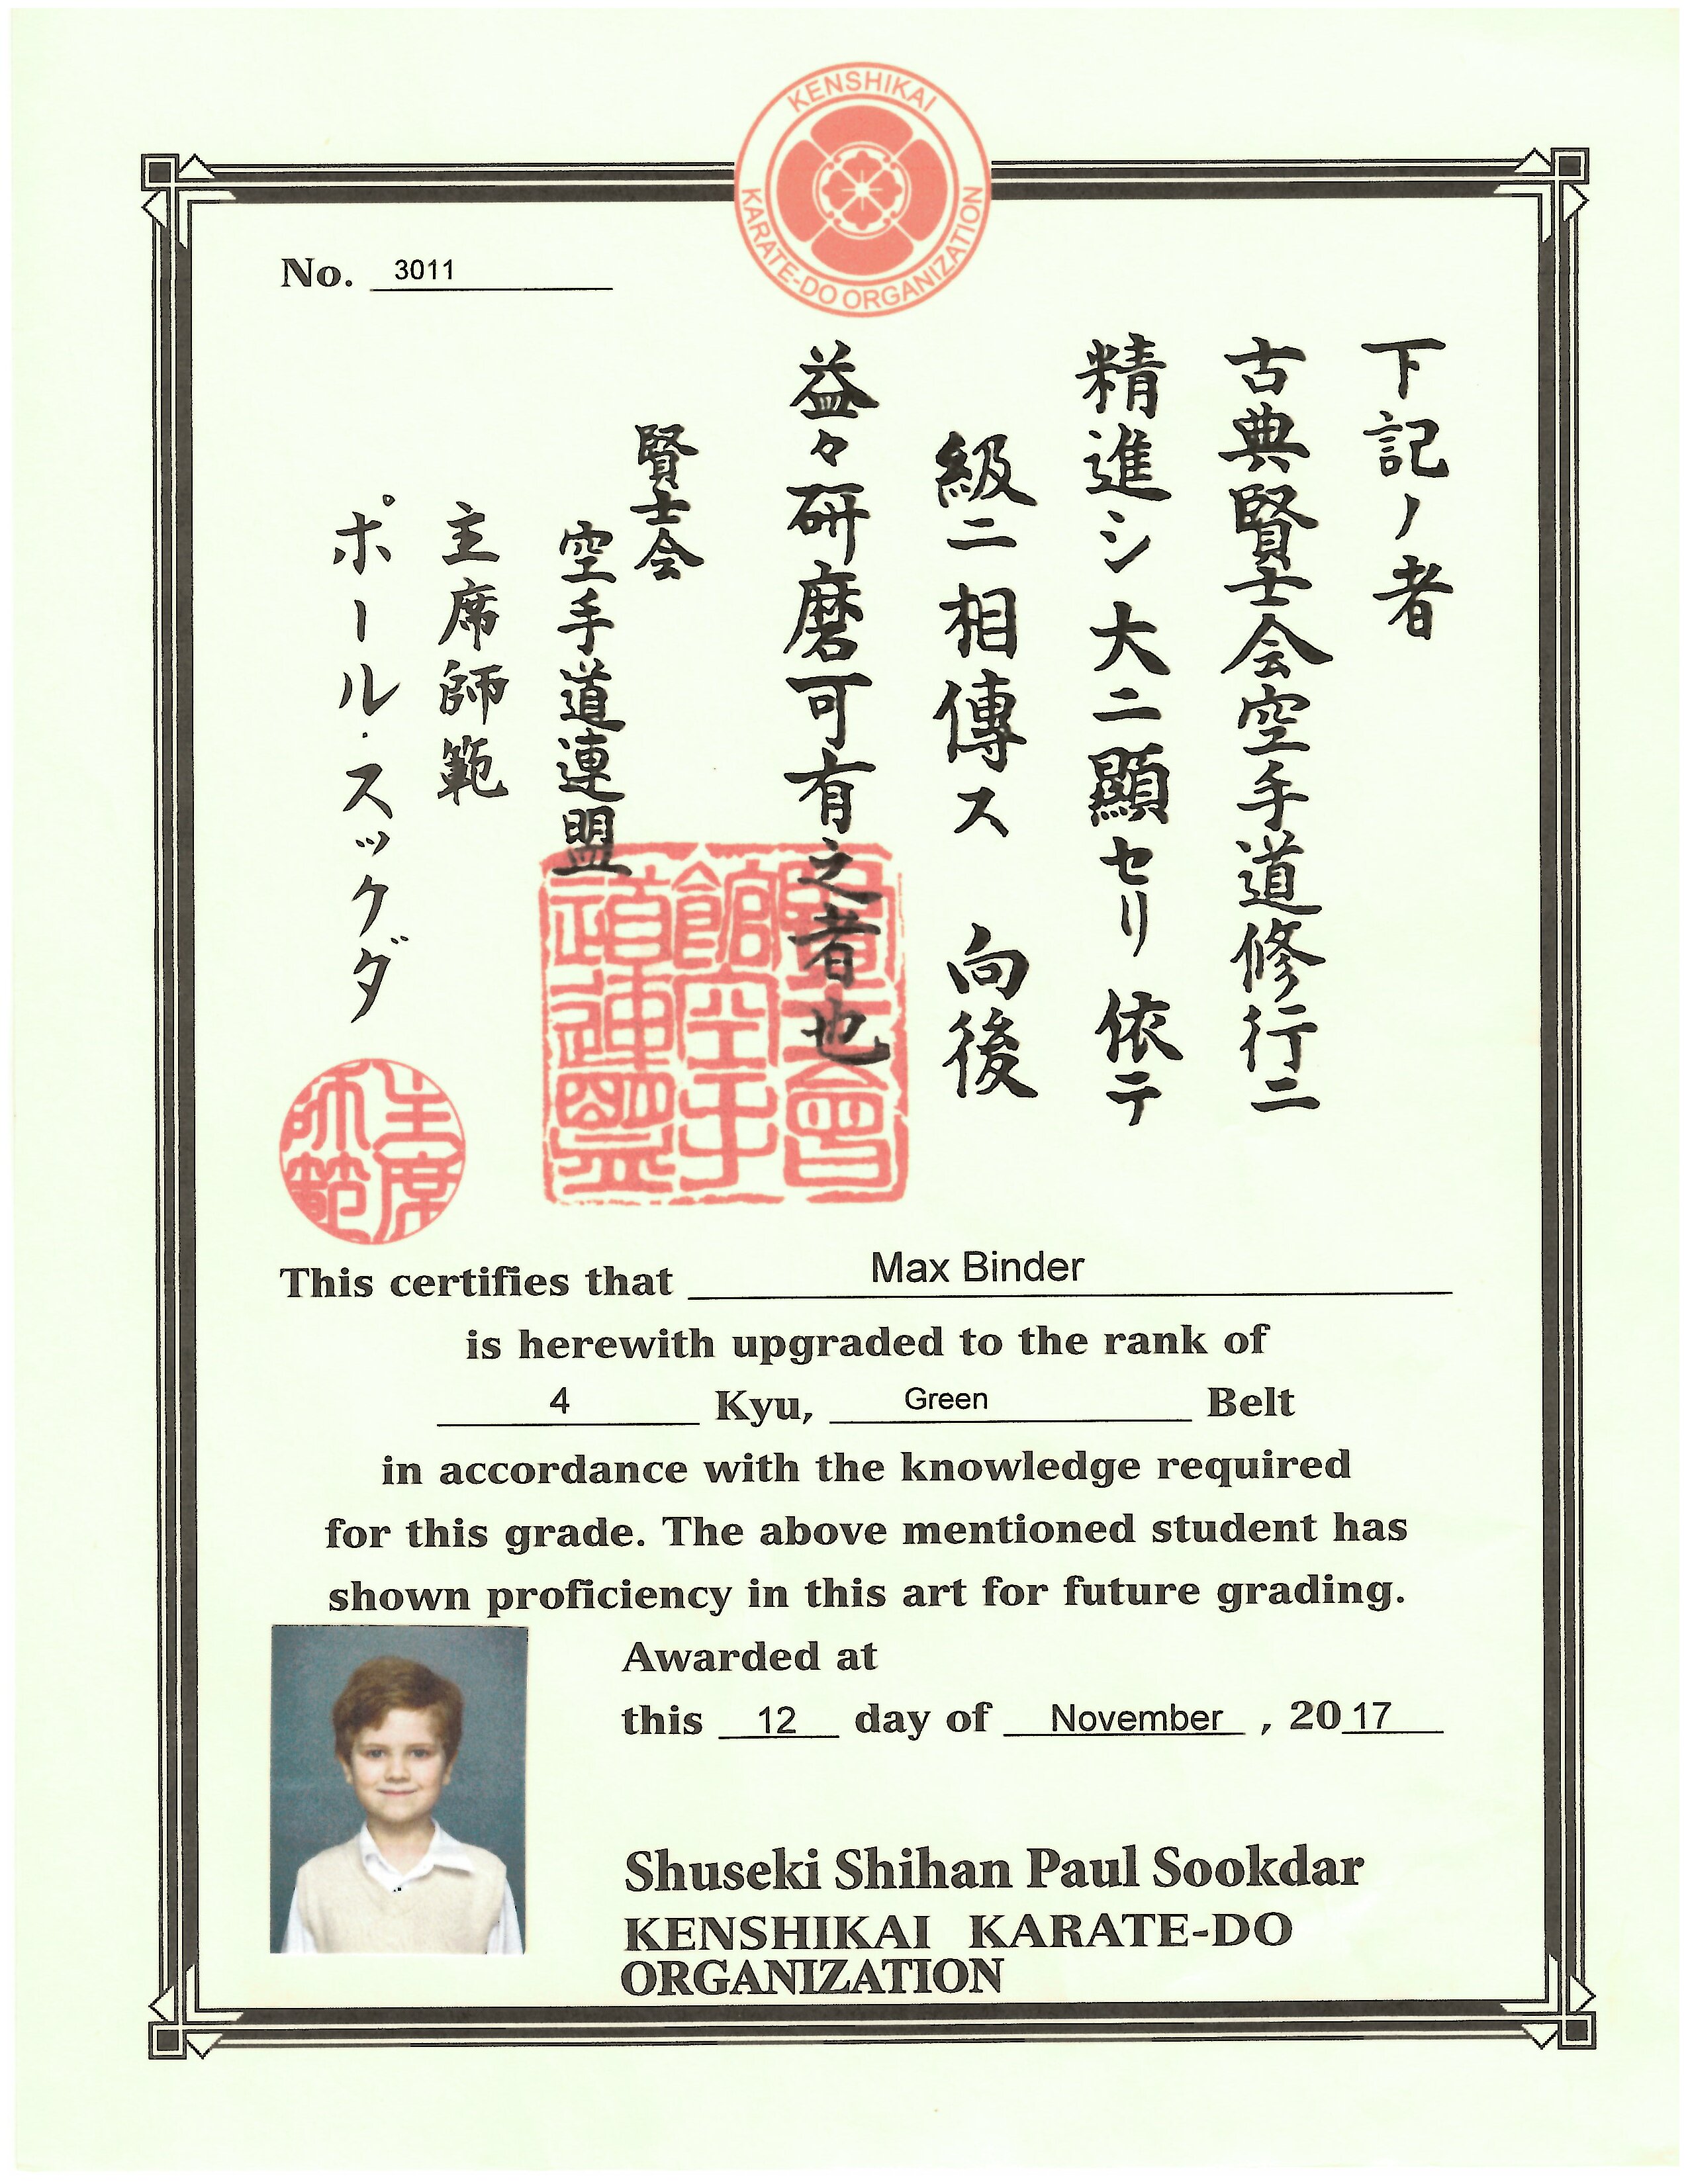 KENSHIKAI
KARATE-DO ORGANIZATION
No. 3011
下記ノ者
古典賢士会空手道修行ニ
精進シ大ニ顕セリ 依テ
級ニ相傳ス 向後
益々研磨可有之者也
賢士会
空手道連盟
主席師範
ポール・スックダ
賢士會
館空手
道連盟
主席
師範
This certifies that Max Binder
is herewith upgraded to the rank of
4 Kyu, Green Belt
in accordance with the knowledge required
for this grade. The above mentioned student has
shown proficiency in this art for future grading.
Awarded at
this 12 day of November , 2017
Shuseki Shihan Paul Sookdar
KENSHIKAI KARATE-DO
ORGANIZATION